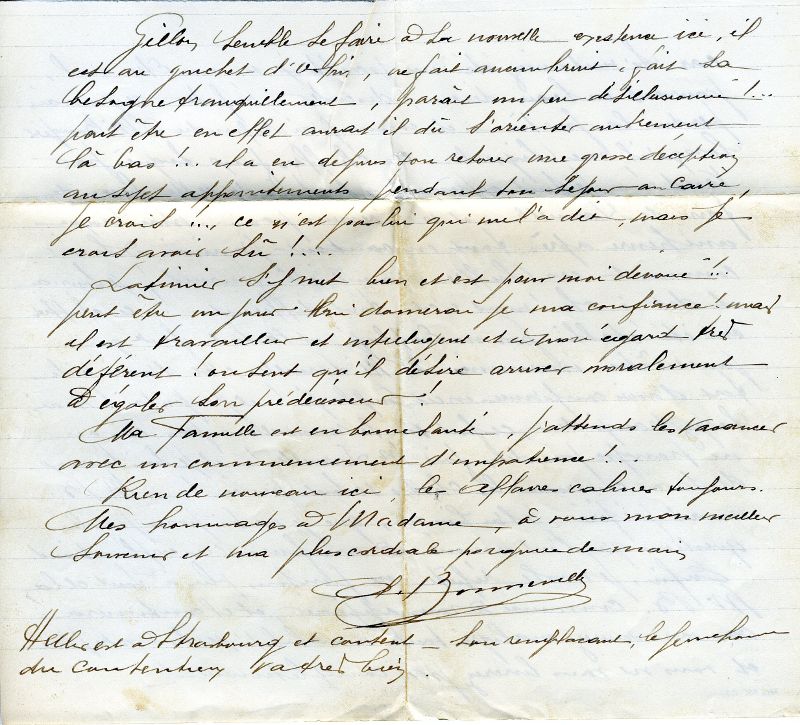 Gillon semble se faire à sa nouvelle existence ici, il
est au guichet d' , ne fait aucun bruit, fait sa
besogne tranquillement, paraît un peu désillusionné !...
peut être en effet aurait il dû s'orienter autrement
là bas !... il a eu depuis son retour une grosse déception
au sujet appointements pendant son séjour au Caire,
je crois !... ce n'est pas lui qui me l'a dit, mais je
crois avoir sû !...
s'y met bien et est pour moi dévoué !..
peut être un jour lui donnerai je ma confiance ! mais
il est travailleur et intelligent et à mon égard très
déférent ! on sent qu'il désire arriver moralement
à égaler son prédécesseur !
Ma Famille est en bonne santé, j'attends les vacances
avec un commencement d'impatience !.
Rien de nouveau ici, les affaires calmes toujours.
Mes hommages à Madame, à vous mon meilleur
souvenir et ma plus cordiale poignée de main
Bonneville
est à Strasbourg et content – son remplaçant, le jeune homme
du contentieux va très bien.